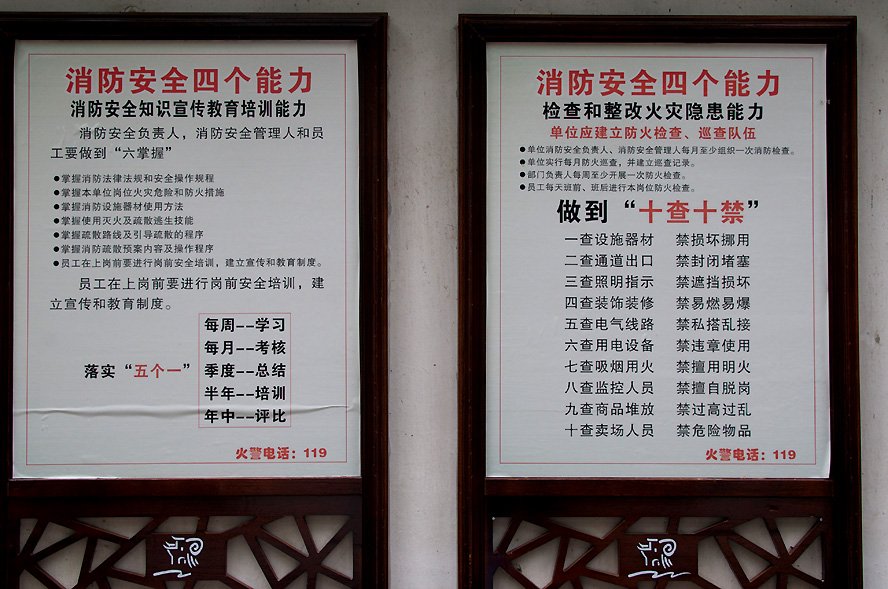 消防安全四个能力
消防安全知识宣传教育培训能力
消防安全负责人，消防安全管理人和员
工要做到“六掌握”
●掌握消防法律法规和安全操作规程
●掌握本单位岗位火灾危险和防火措施
●掌握消防设施器材使用方法
●掌握使用灭火及疏散逃生技能
●掌握疏散路线及引导疏散的程序
●掌握消防疏散预案内容及操作程序
●员工在上岗前要进行岗前安全培训，建立宣传和教育制度。
员工在上岗前要进行岗前安全培训，建
立宣传和教育制度。
落实“五个一”
每周--学习
每月--考核
季度--总结
半年--培训
年中--评比
火警电话：119
消防安全四个能力
检查和整改火灾隐患能力
单位应建立防火检查、巡查队伍
●单位消防安全负责人、消防安全管理人每月至少组织一次消防检查。
●单位实行每月防火巡查，并建立巡查记录。
●部门负责人每周至少开展一次防火检查。
●员工每天班前、班后进行本岗位防火检查。
做到“十查十禁”
一查设施器材 禁损坏挪用
二查通道出口 禁封闭堵塞
三查照明指示 禁遮挡损坏
四查装饰装修 禁易燃易爆
五查电气线路 禁私搭乱接
六查用电设备 禁违章使用
七查吸烟用火 禁擅用明火
八查监控人员 禁擅自脱岗
九查商品堆放 禁过高过乱
十查卖场人员 禁危险物品
火警电话：119